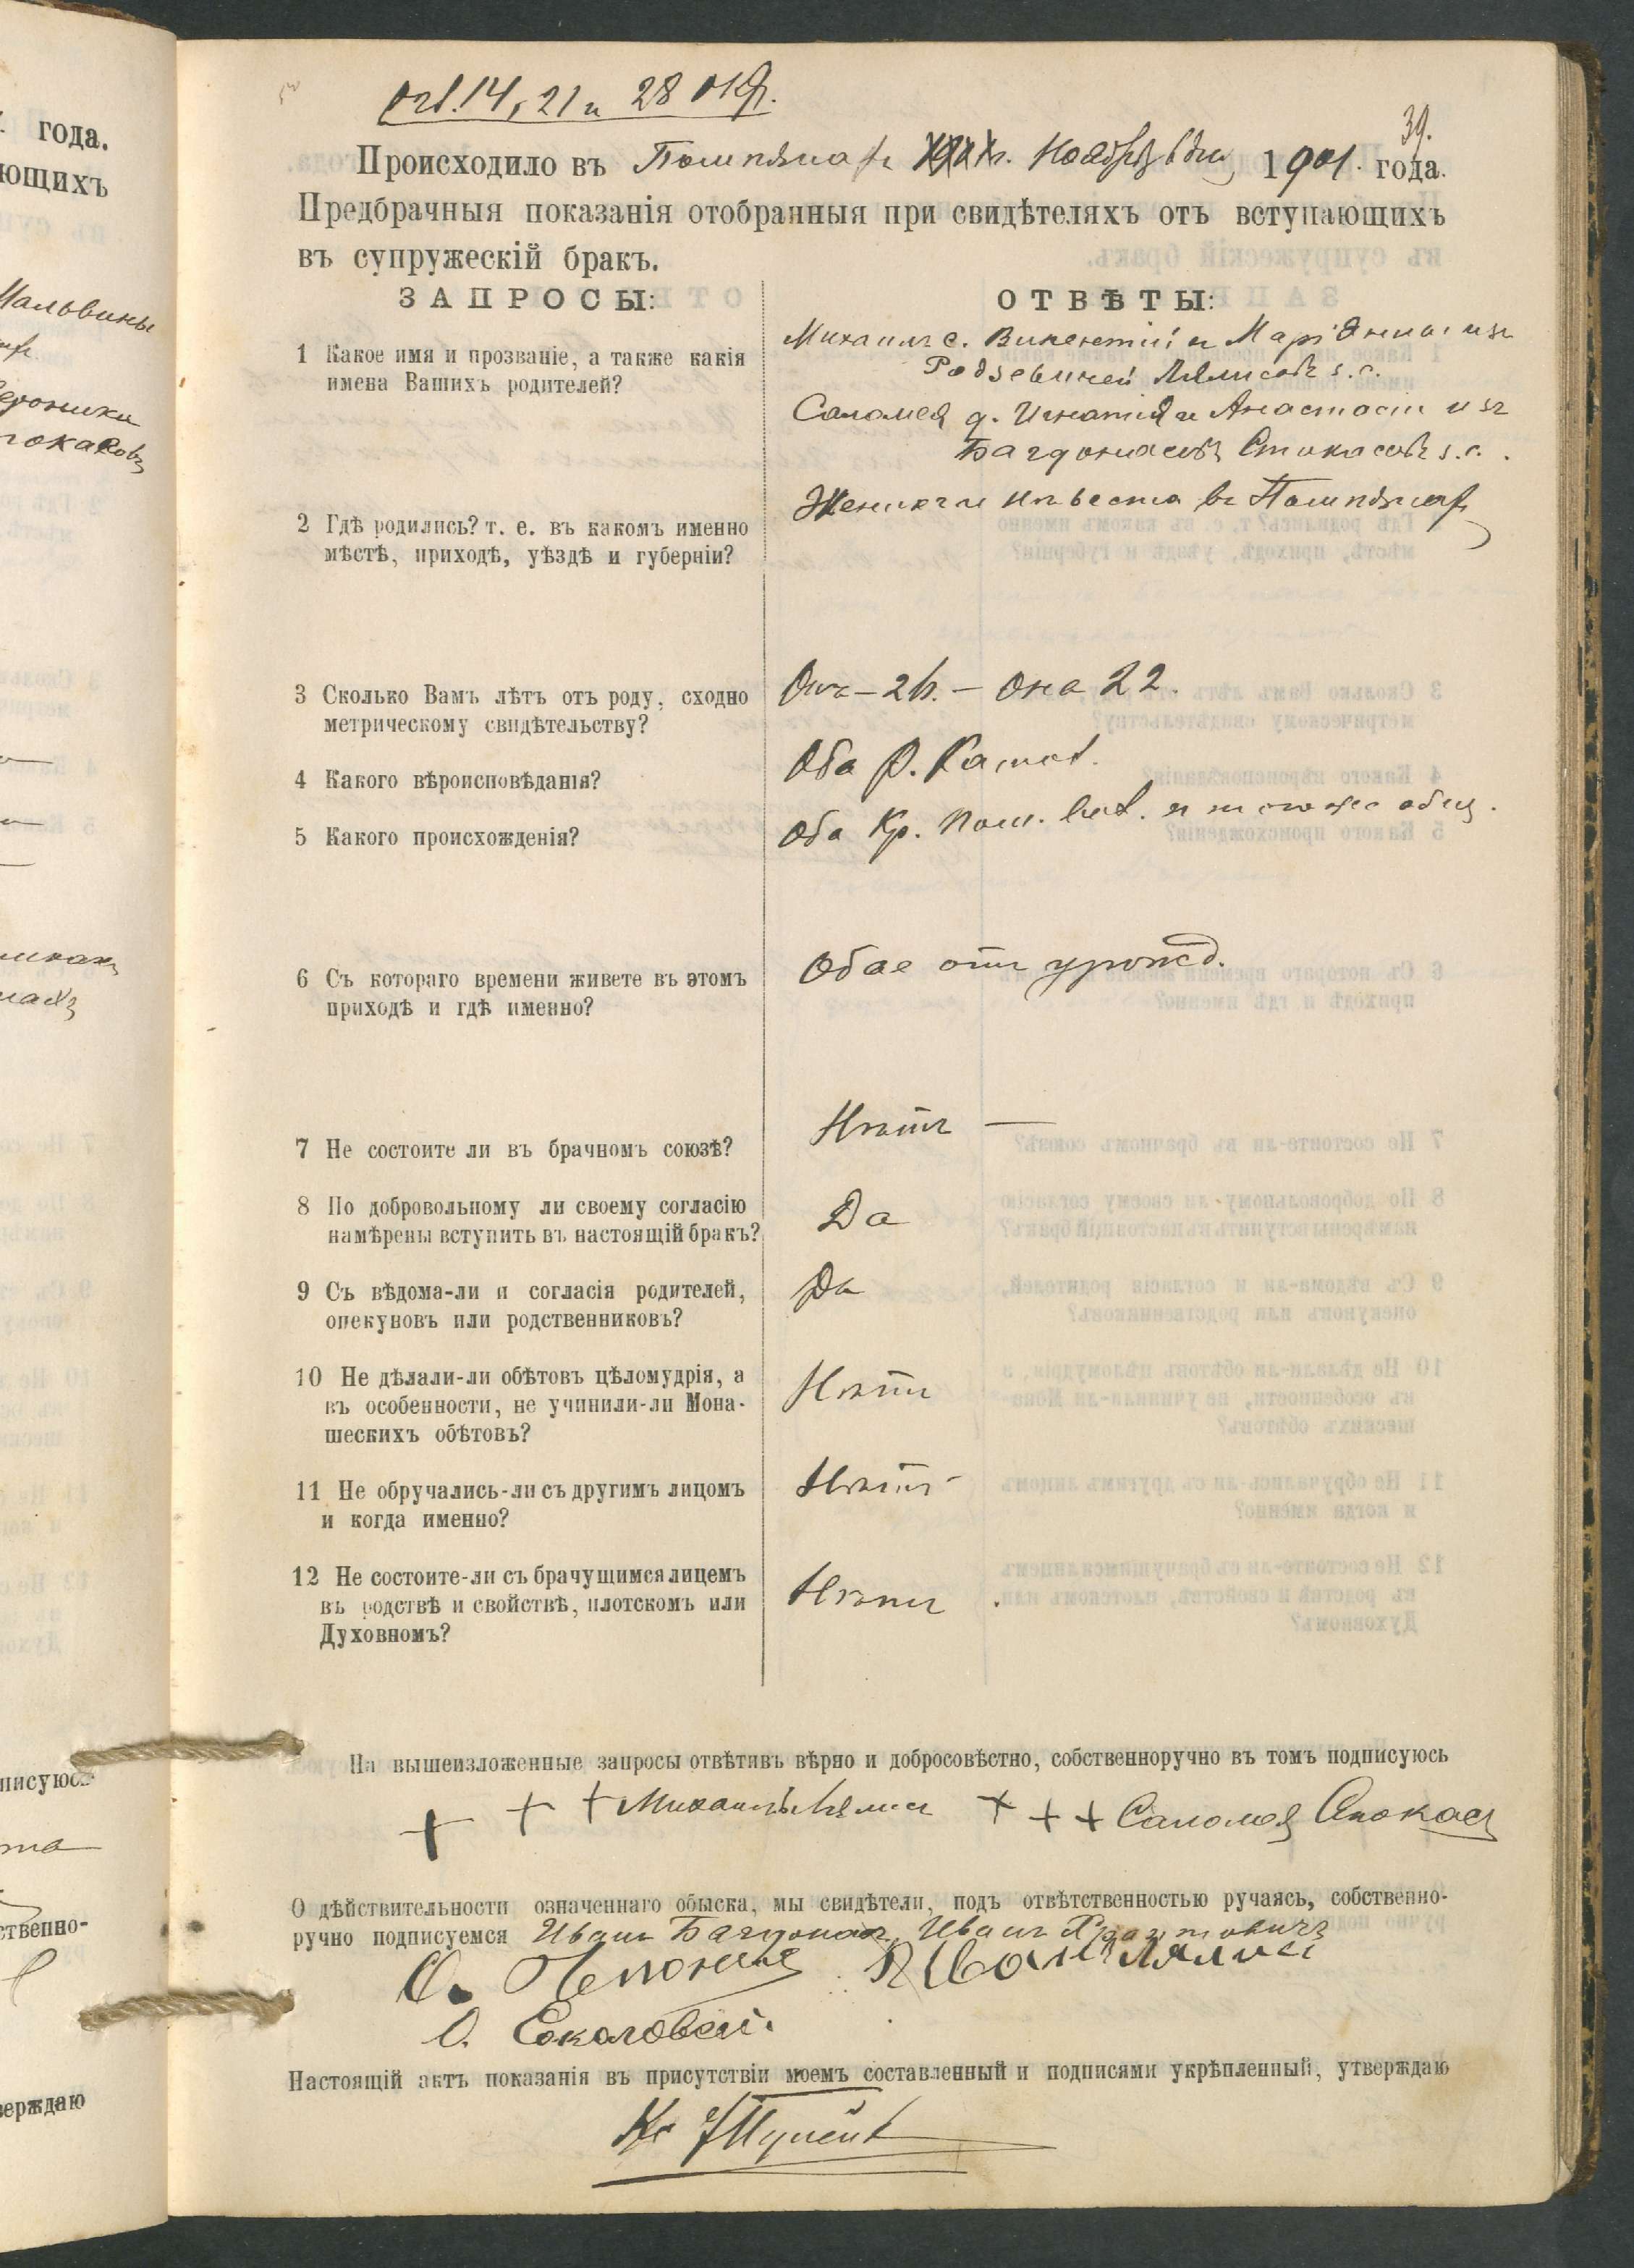 Огл. 14, 21 и 28 Окт.
39.
Происходило въ Помпянах Ноября дня 1901. года.
Предбрачныя показанія отобранныя при свидѣтеляхъ отъ вступающихъ
въ супружескій бракъ.
ЗАПРОСЫ:
ОТВѢТЫ:
1 Какое имя и прозваніе, а также какія
имена Вашихъ родителей?
Михаилъ с. Викентій и Маріанна изъ
Родзевичей Лялисовъ з. с.
Саломея д. Игнатія и Анастасіи изъ
Багдонасовъ Стокасовъ з. с.
2 Гдѣ родились? т. е. въ какомъ именно
мѣстѣ, приходѣ, уѣздѣ и губерніи?
Женихъ и невѣста въ Помпянах
3 Сколько Вамъ лѣтъ отъ роду, сходно
метрическому свидѣтельству?
Онъ – – Она 22.
4 Какого вѣроисповѣданія?
Оба Р. Катол.
5 Какого происхожденія?
Оба Кр. Пом. вол. и того же общ.
6 Съ котораго времени живете въ этомъ
приходѣ и гдѣ именно?
Обое отъ урожд.
7 Не состоите ли въ брачномъ союзѣ?
Нѣтъ —
8 По добровольному ли своему согласію
намѣрены вступить въ настоящій бракъ?
Да
9 Съ вѣдома-ли и согласія родителей,
опекуновъ или родственниковъ?
Да
10 Не дѣлали-ли обѣтовъ цѣломудрія, а
въ особенности, не учинили-ли Мона-
шескихъ обѣтовъ?
Нѣтъ
11 Не обручались-ли съ другимъ лицомъ
и когда именно?
Нѣтъ
12 Не состоите-ли съ брачущимся лицемъ
въ родствѣ и свойствѣ, плотскомъ или
Духовномъ?
Нѣтъ
На вышеизложенные запросы отвѣтивъ вѣрно и добросовѣстно, собственноручно въ томъ подписуюсь
+ + + Михаилъ Лялис + + + Саломея Стокас
О дѣйствительности означеннаго обыска, мы свидѣтели, подъ отвѣтственностью ручаясь, собственно-
ручно подписуемся Иванъ Багдонас, Иванъ
О. Иван Лялис
О. Соколовскі.
Настоящій актъ показанія въ присутствіи моемъ составленный и подписями укрѣпленный, утверждаю
Кс